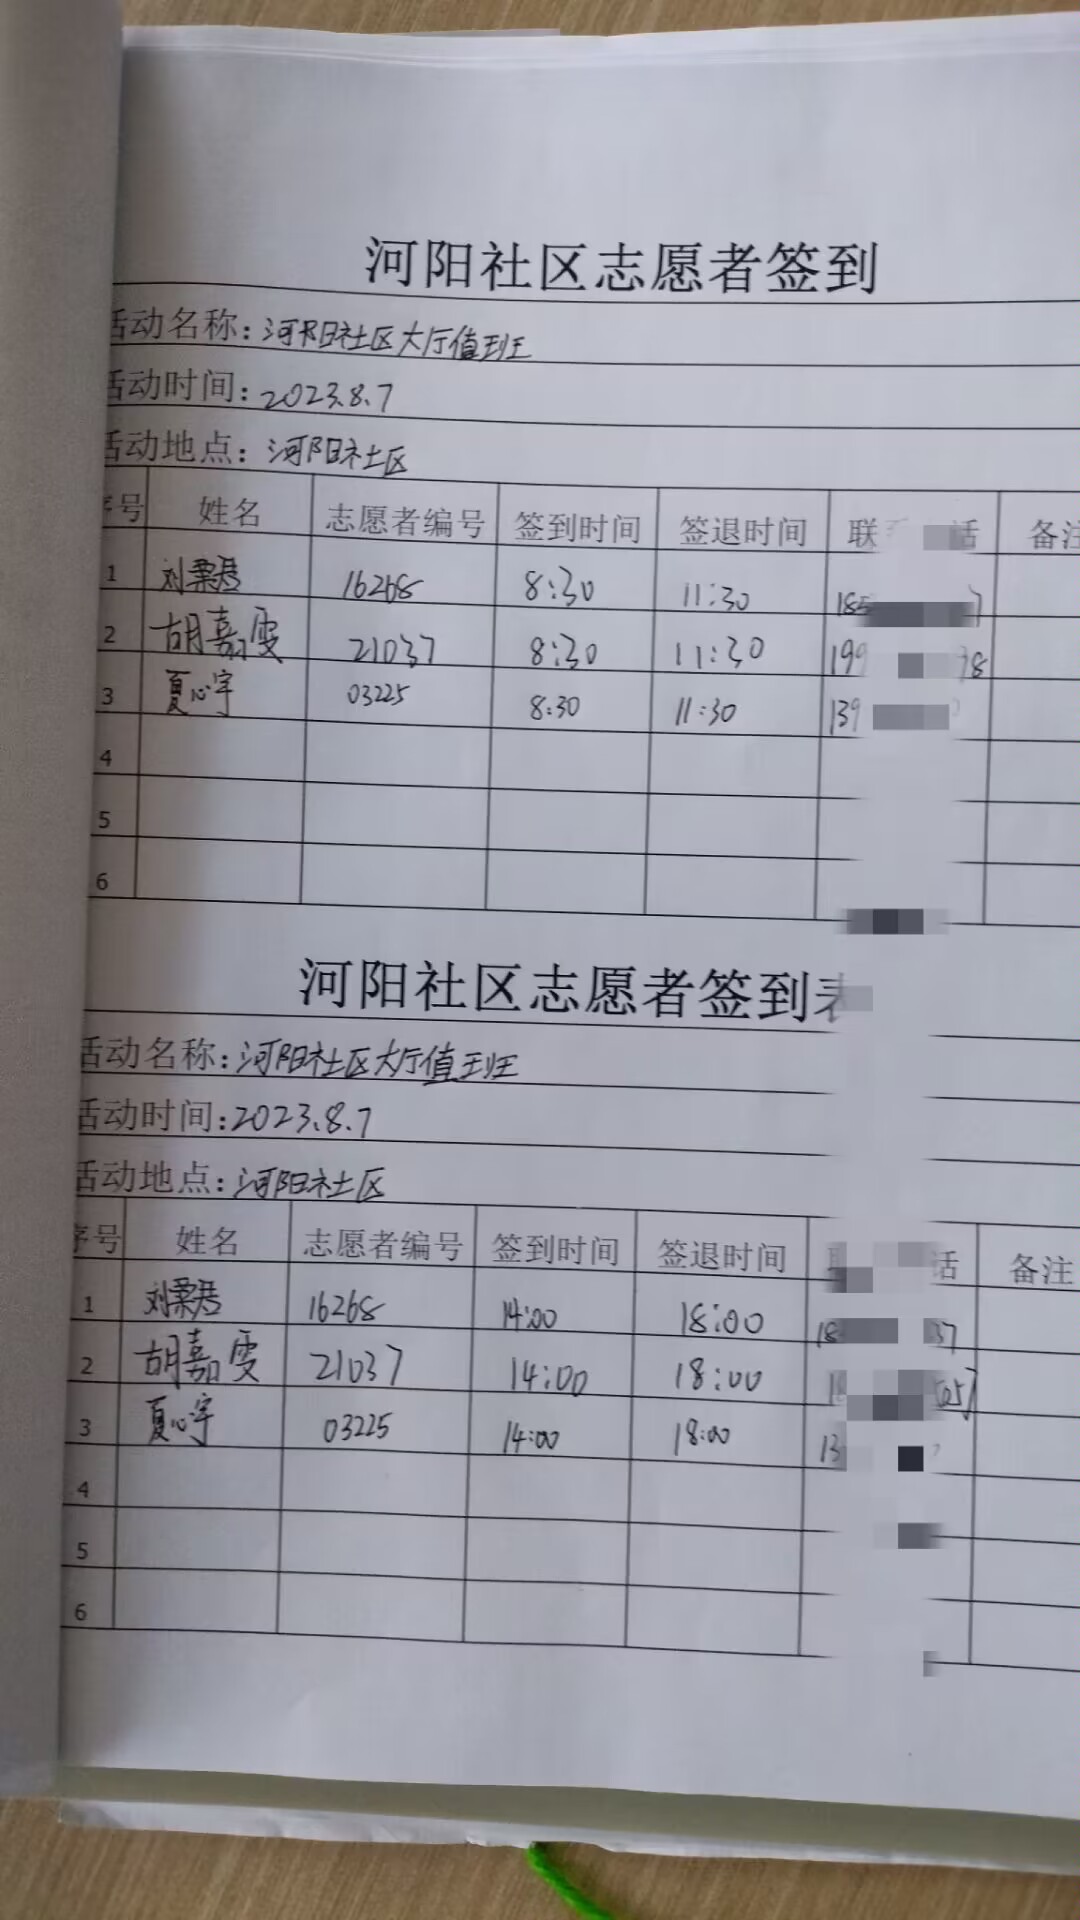 河阳社区志愿者签到
活动名称：河阳社区大厅值班
活动时间：2023.8.7
活动地点：河阳社区
序号 姓名 志愿者编号 签到时间 签退时间 联 话 备注
1 刘 君 16268 8:30 11:30 185 7
2 胡嘉雯 21037 8:30 11:30 199 78
3 夏心宇 03225 8:30 11:30 139
4
5
6
河阳社区志愿者签到表
活动名称：河阳社区大厅值班
活动时间：2023.8.7
活动地点：河阳社区
序号 姓名 志愿者编号 签到时间 签退时间 联 话 备注
1 刘 君 16268 14:00 18:00 18 37
2 胡嘉雯 21037 14:00 18:00 1
3 夏心宇 03225 14:00 18:00 13
4
5
6